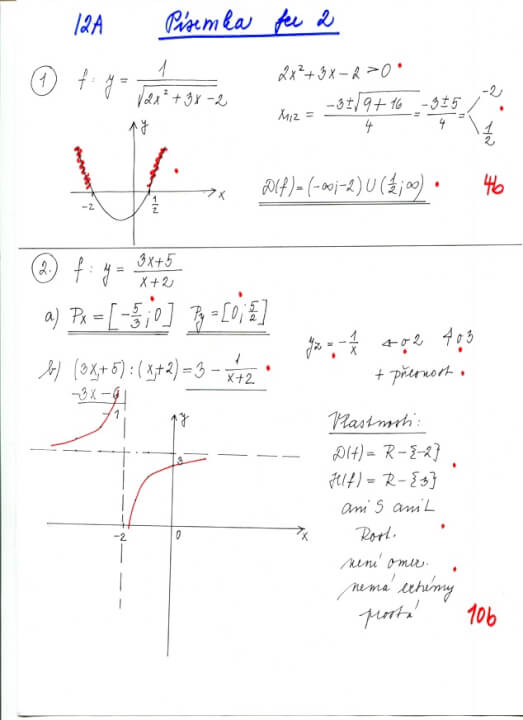 12A Písemka fce 2
1 f: y = 1/√(2x² + 3x - 2)
2x² + 3x - 2 > 0
x₁,₂ = (-3 ± √(9 + 16))/4 = (-3 ± 5)/4 = -2
1/2
y
-2 1/2 x
D(f) = (-∞; -2) ∪ (1/2; ∞) 4b
2. f: y = (3x + 5)/(x + 2)
a) Px = [-5/3; 0] Py = [0; 5/2]
yz = -1/x ← o 2 ↑ o 3
+ přesnost
b) (3x + 5) : (x + 2) = 3 - 1/(x + 2)
-3x - 6
-1
y
3
-2 0 x
Vlastnosti:
D(f) = R - {-2}
H(f) = R - {3}
ani S ani L
Rost.
není omez.
nemá extrémy
prostá 10b